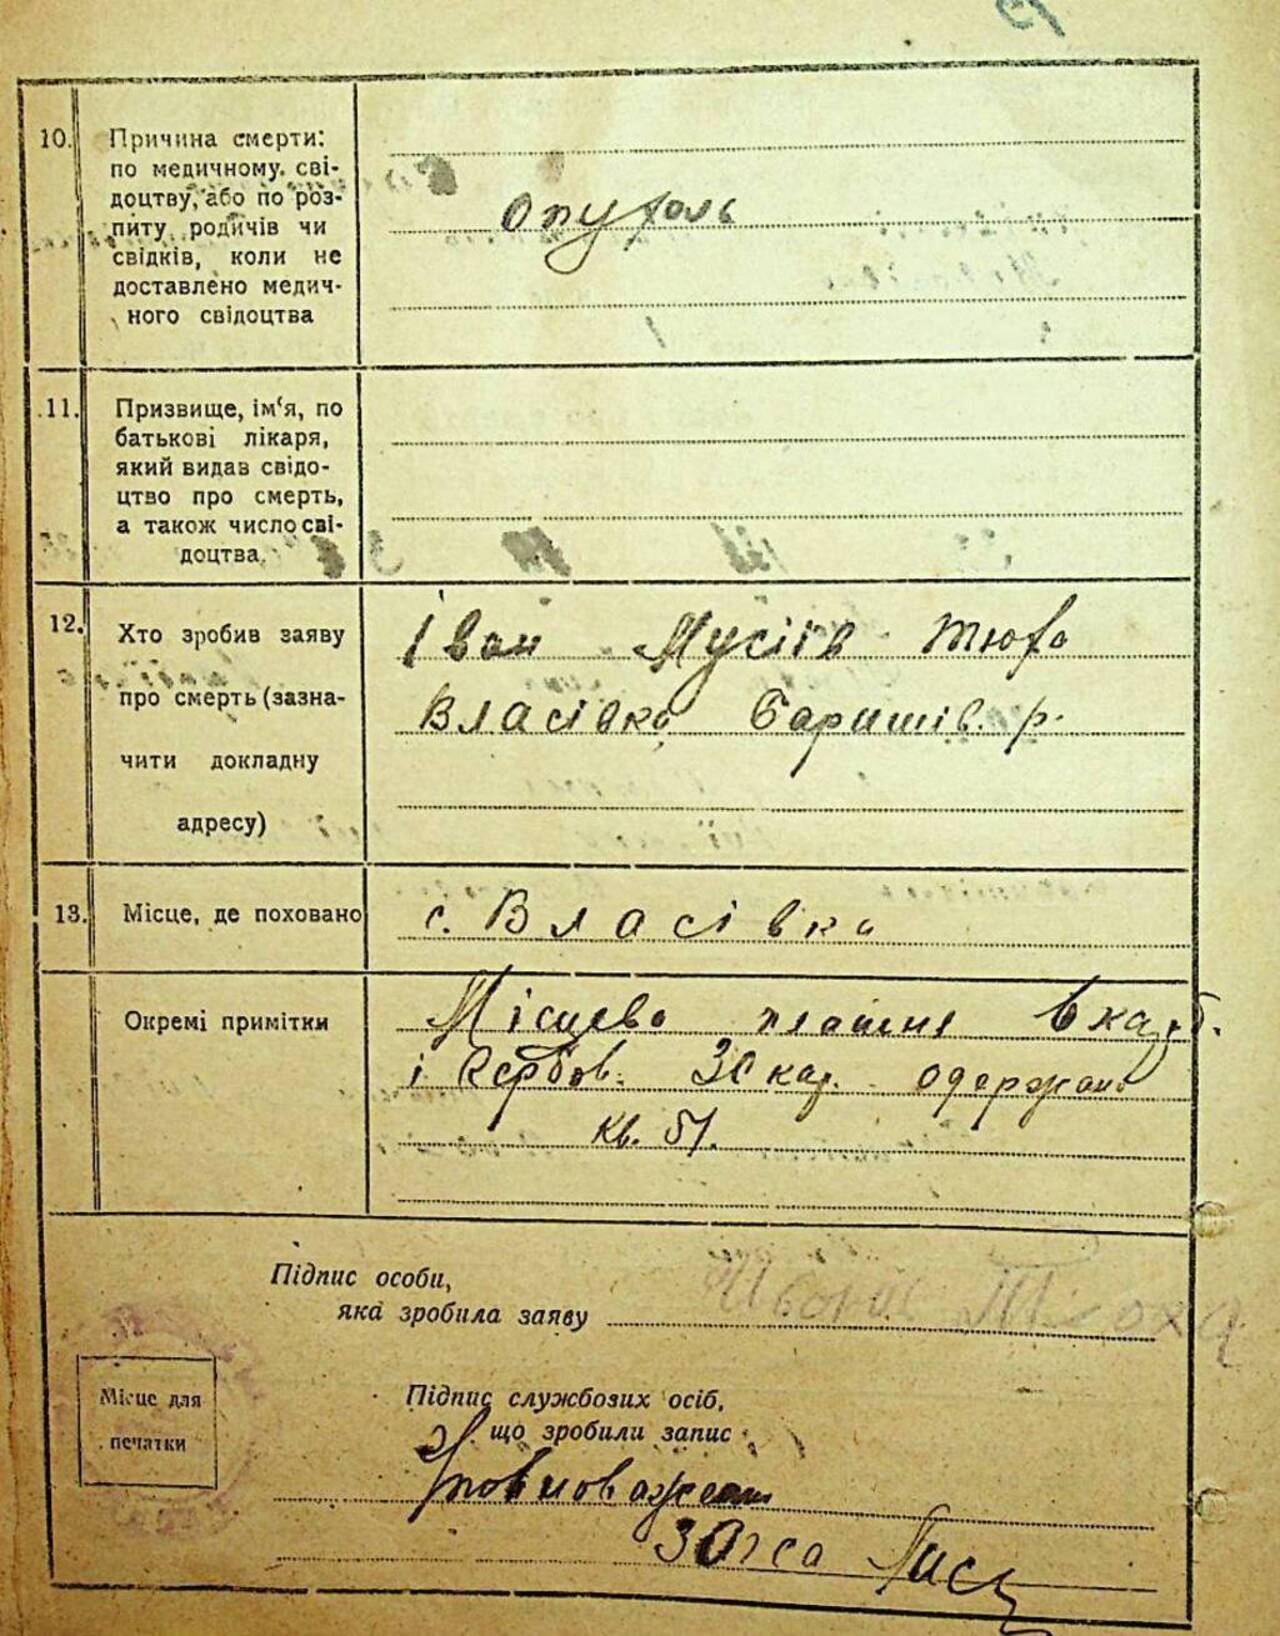 10. Причина смерти:
по медичному. сві-
доцтву, або по роз-
питу родичів чи
свідків, коли не
доставлено медич-
ного свідоцтва
Опухоль
11. Призвище, ім‘я, по
батькові лікаря,
який видав свідо-
цтво про смерть,
а також число сві-
доцтва.
12. Хто зробив заяву
про смерть (зазна-
чити докладну
адресу)
Іван Мусіїв
Власівка Баришів. р.
13. Місце, де поховано
с. Власівка
Окремі примітки
Місцева
і Гербов. кар. одержано
кв. 51.
Підпис особи,
яка зробила заяву
Підпис службових осіб,
що зробили запис
Місце для
печатки
Уповноважен